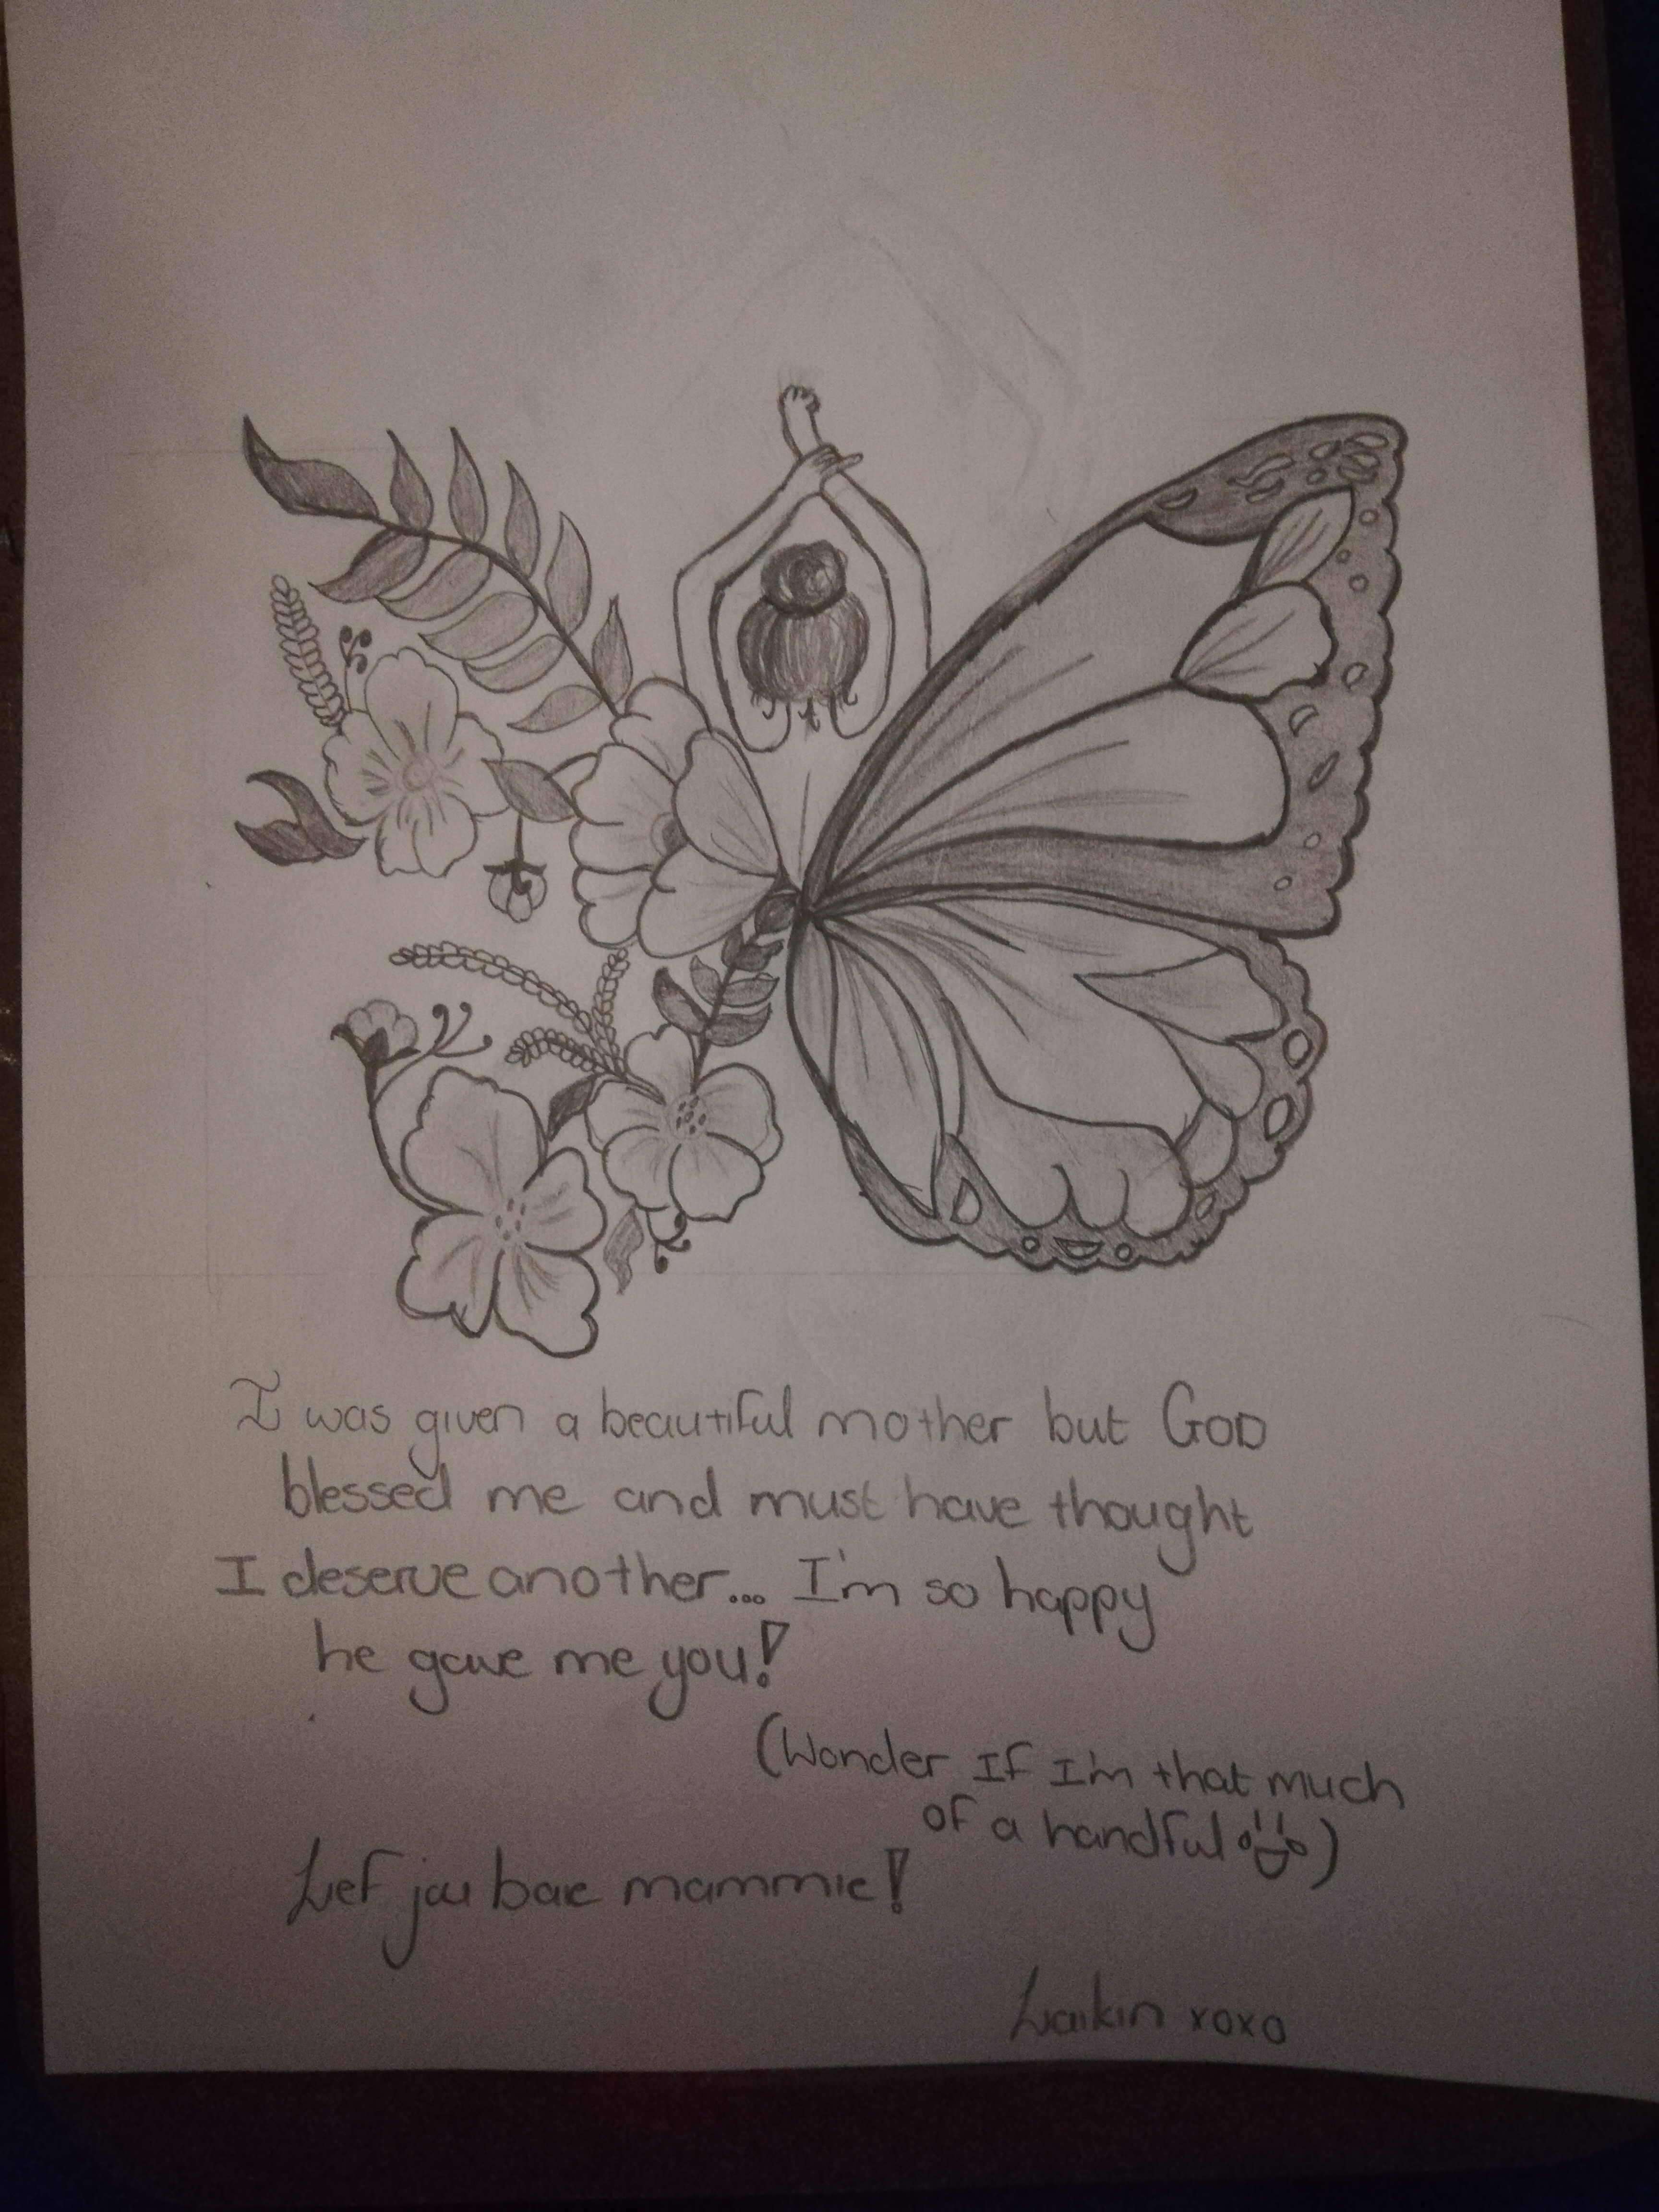 I was given a beautiful mother but GOD
blessed me and must have thought
I deserve another... I'm so happy
he gave me you!
(Wonder If I'm that much
of a handful)
Lef jou bae mammie!
Laikin xoxo